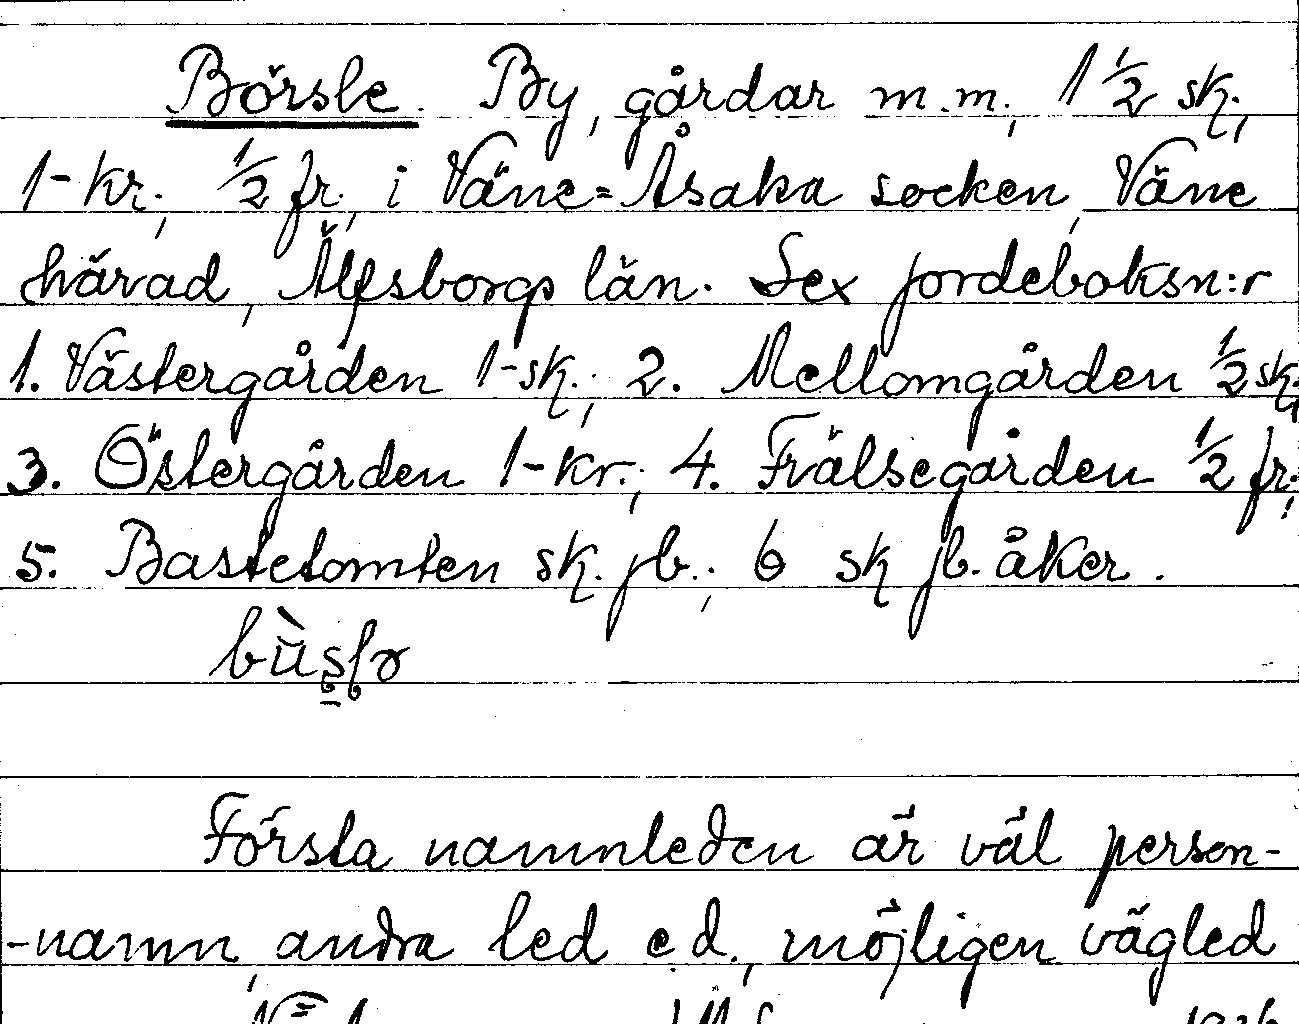 Börsle. By, gårdar m.m., 1 1/2 sk.,
1-kr., 1/2 fr., i Väne-Åsaka socken, Väne
härad, Älfsborgs län. Sex jordeboksn:r
1. Västergården 1-sk.; 2. Mellomgården 1/2 sk.;
3. Östergården 1-kr.; 4. Frälsegården 1/2 fr.;
5. Bastetomten sk. jb.; 6 sk jb. åker.
Första namnleden är väl person-
-namn, andra led e.d., möjligen vägled